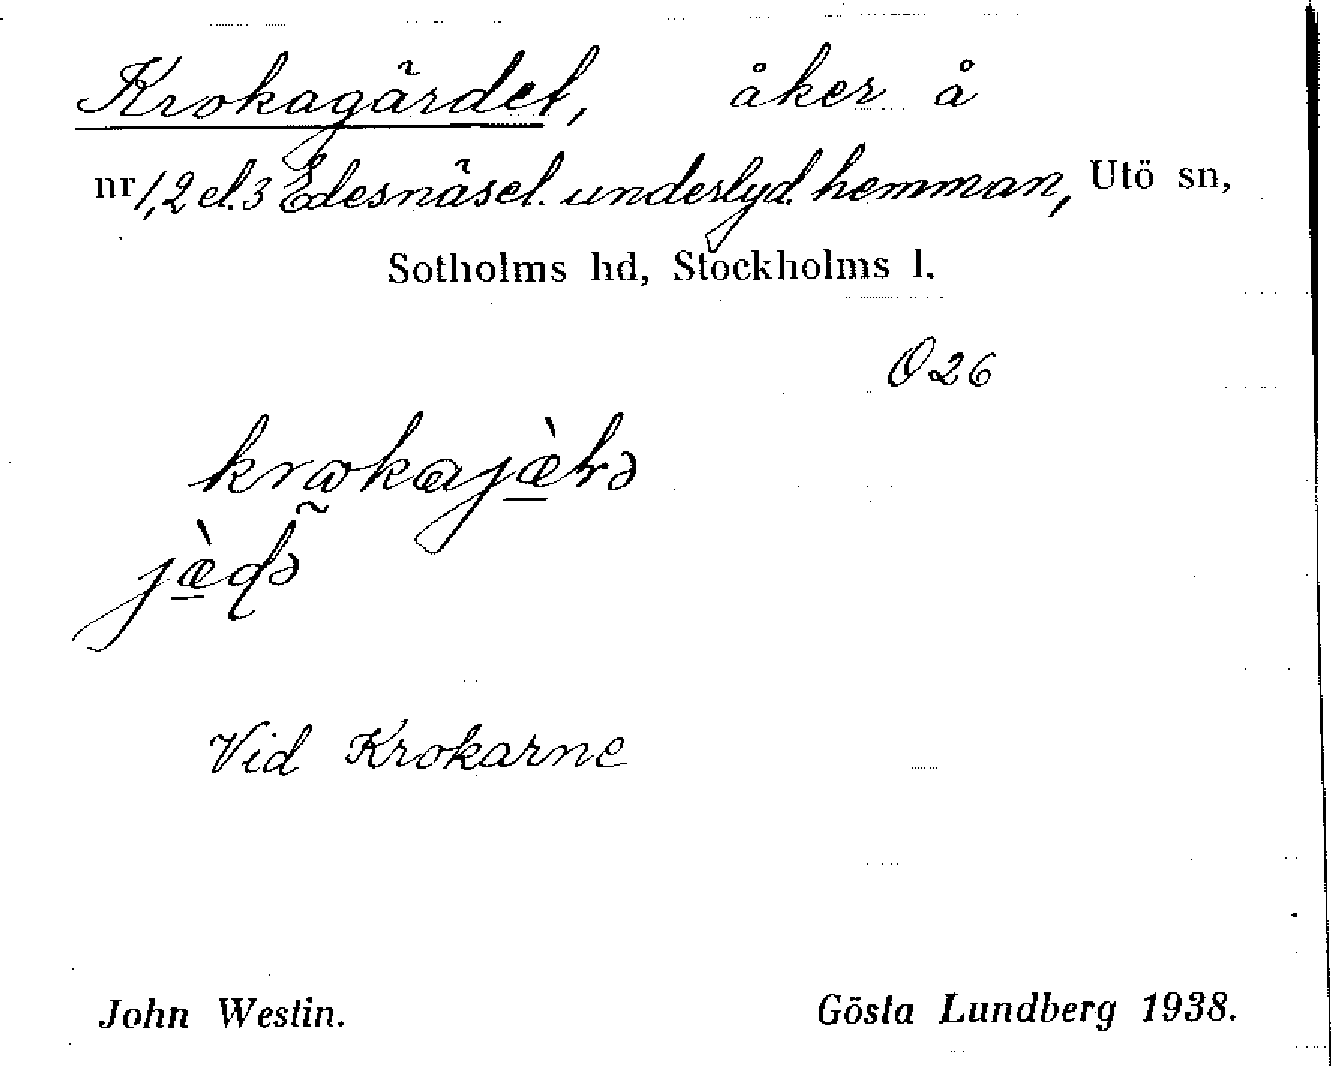 Krokagärdet, åker å
nr 1, 2 el. 3 Edesnäsel. underlyd. hemman, Utö sn,
Sotholms hd, Stockholms l.
O 26
Vid Krokarne
John Westin. Gösta Lundberg 1938.